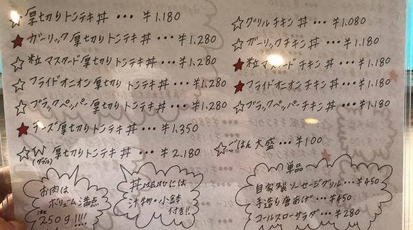 ☆ 厚切りトンテキ丼 … ¥1.180
★ ガーリック厚切りトンテキ丼 … ¥1.280
☆ 粒マスタード厚切りトンテキ丼 … ¥1.280
☆ フライドオニオン厚切りトンテキ丼 … ¥1.280
☆ ブラックペッパー厚切りトンテキ丼 … ¥1.280
★ チーズ厚切りトンテキ丼 … ¥1.350
☆ W(ダブル)厚切りトンテキ丼 … ¥2.180
☆ グリルチキン丼 … ¥1.080
☆ ガーリックチキン丼 … ¥1.180
★ 粒マスタードチキン丼 … ¥1.180
★ フライドオニオンチキン丼 … ¥1.180
☆ ブラックペッパーチキン丼 … ¥1.180
☆ ごはん大盛 … ¥100
お肉は
ボリューム満点
250g!!!!
丼
汁物・小鉢
付き!!
単品
自家製ソーセージグリル … ¥450
手造り唐あげ … ¥450
コールスローサラダ … ¥280